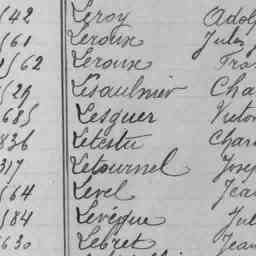 542 Leroy Adol
561 Leroux Jules
562 Leroux Fra
529 Lesaulnier Cha
685 Lesquer Victo
836 Letestu Char
317 Letournel Josep
564 Level Jean
584 Levêque Jul
630 Lebret Jean